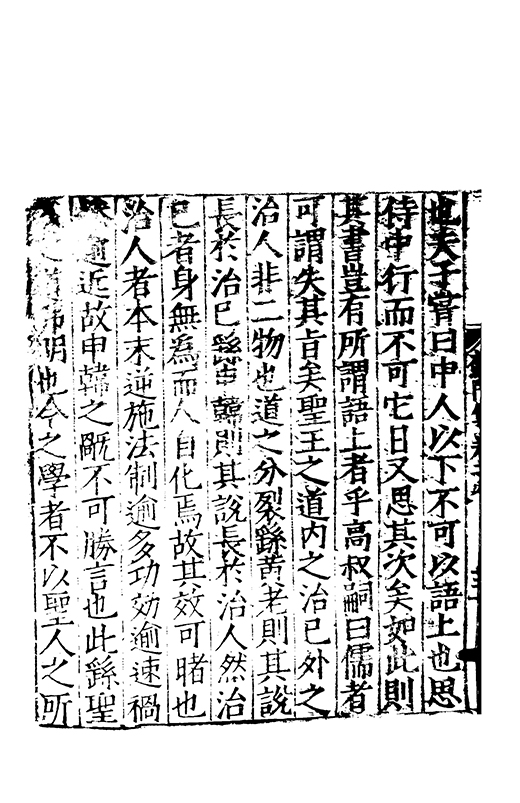 也夫子嘗曰中人以下不可以語上也思
待中行而不可它日又思其次矣如此則
其書豈有所謂語上者乎高叔嗣曰儒者
可謂失其旨矣聖王之道内之治已外之
治人非二物也道之分裂繇黄老則其說
長於治已繇申韓則其說長於治人然治
已者身無為而人自化焉故其效可睹也
治人者本末逆施法制逾多功効逾速禍
逾近故申韓之敝不可勝言也此繇聖
道弗明也今之學者不以聖人之所